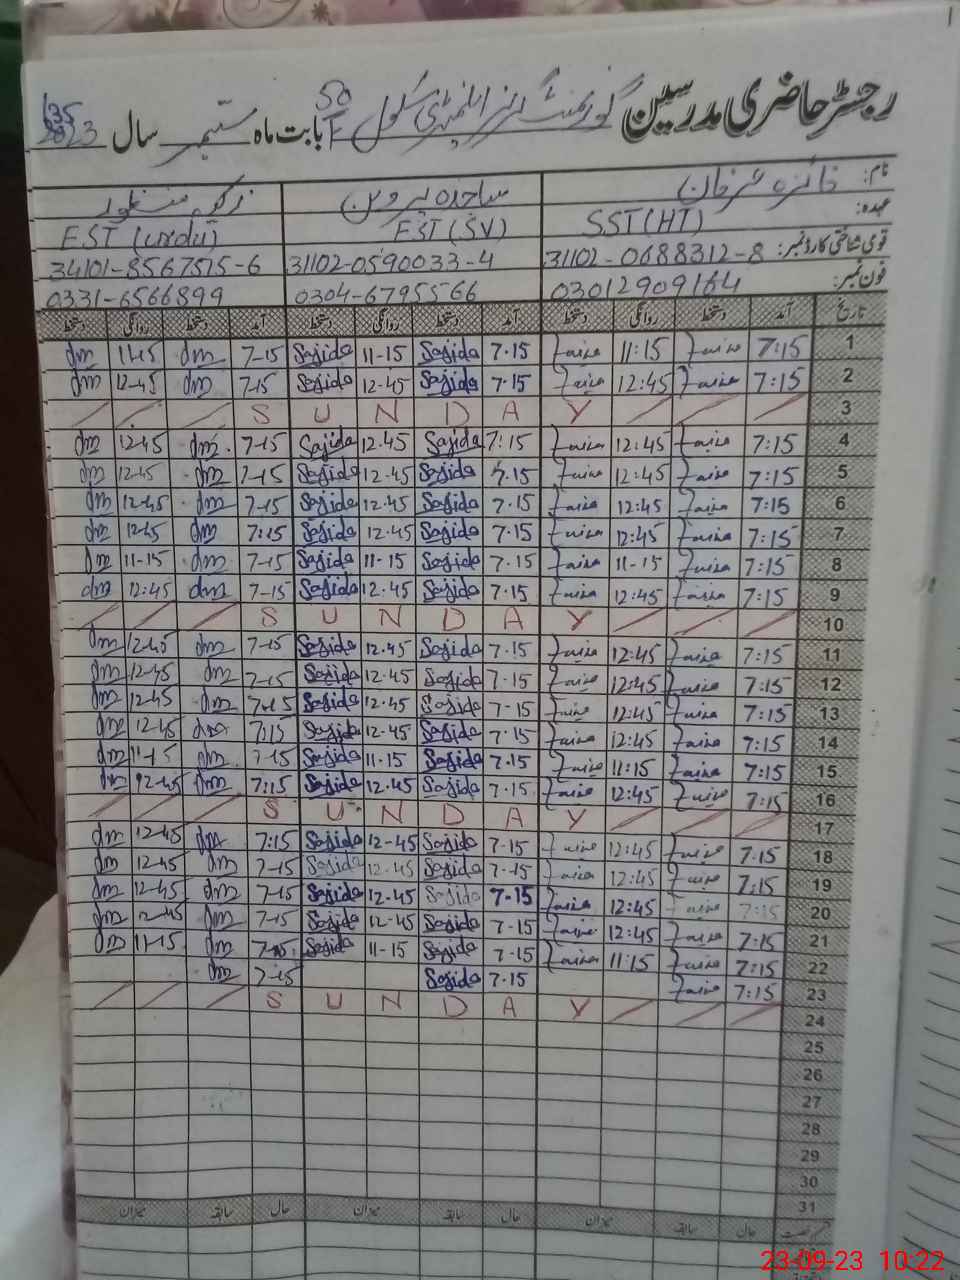 رجسٹر حاضری مدرسین گورنمنٹ گرلز ایلیمنٹری سکول 50/F بابت ماہ ستمبر سال 2023
نام: فائزہ عرفان ساجدہ پروین
عہدہ: SST(HT) EST(SV) EST (Urdu)
قومی شناختی کارڈ نمبر: 31102-0688312-8 31102-0590033-4 34101-8567515-6
فون نمبر: 03012909164 0304-6795566 0331-6566899
تاریخ آمد دستخط روانگی دستخط آمد دستخط روانگی دستخط آمد دستخط روانگی دستخط
1 7:15 11:15 7-15 Sajida 11-15 Sajida 7-15 dm 11-15 dm
2 7:15 12:45 7-15 Sajida 12-45 Sajida 7-15 dm 12-45 dm
3 S U N D A Y
4 7:15 12:45 7:15 Sajida 12-45 Sajida 7-15 dm 12-45 dm
5 7:15 12:45 7.15 Sajida 12-45 Sajida 7-15 dm 12-45 dm
6 7:15 12:45 7.15 Sajida 12-45 Sajida 7-15 dm 12-45 dm
7 7:15 12:45 7-15 Sajida 12-45 Sajida 7:15 dm 12-45 dm
8 7:15 11-15 7-15 Sajida 11-15 Sajida 7-15 dm 11-15 dm
9 7:15 12:45 7.15 Sajida 12-45 Sajida 7-15 dm 12:45 dm
10 S U N D A Y
11 7:15 12:45 7-15 Sajida 12.45 Sajida 7-15 dm 12-45 dm
12 7:15 12:45 7-15 Sajida 12-45 Sajida 7-15 dm 12-45 dm
13 7:15 12:45 7-15 Sajida 12-45 Sajida 7-15 dm 12-45 dm
14 7:15 12:45 7-15 Sajida 12-45 Sajida 7:15 dm 12-45 dm
15 7:15 11:15 7-15 Sajida 11-15 Sajida 7-15 dm 11-15 dm
16 7:15 12:45 7-15 Sajida 12.45 Sajida 7:15 dm 12-45 dm
17 S U N D A Y
18 7.15 12:45 7-15 Sajida 12-45 Sajida 7:15 dm 12-45 dm
19 7:15 12:45 7-15 Sajida 12-45 Sajida 7-15 dm 12-45 dm
20 7:15 12:45 7-15 Sajida 12-45 Sajida 7-15 dm 12-45 dm
21 7:15 12:45 7-15 Sajida 12-45 Sajida 7-15 dm 12-45 dm
22 7:15 11:15 7-15 Sajida 11-15 Sajida 7-15 dm 11-15 dm
23 7:15 7-15 Sajida 7-15 dm
24 S U N D A Y
25
26
27
28
29
30
31
حال سابقہ میزان حال سابقہ میزان حال سابقہ میزان
23-09-23 10:22